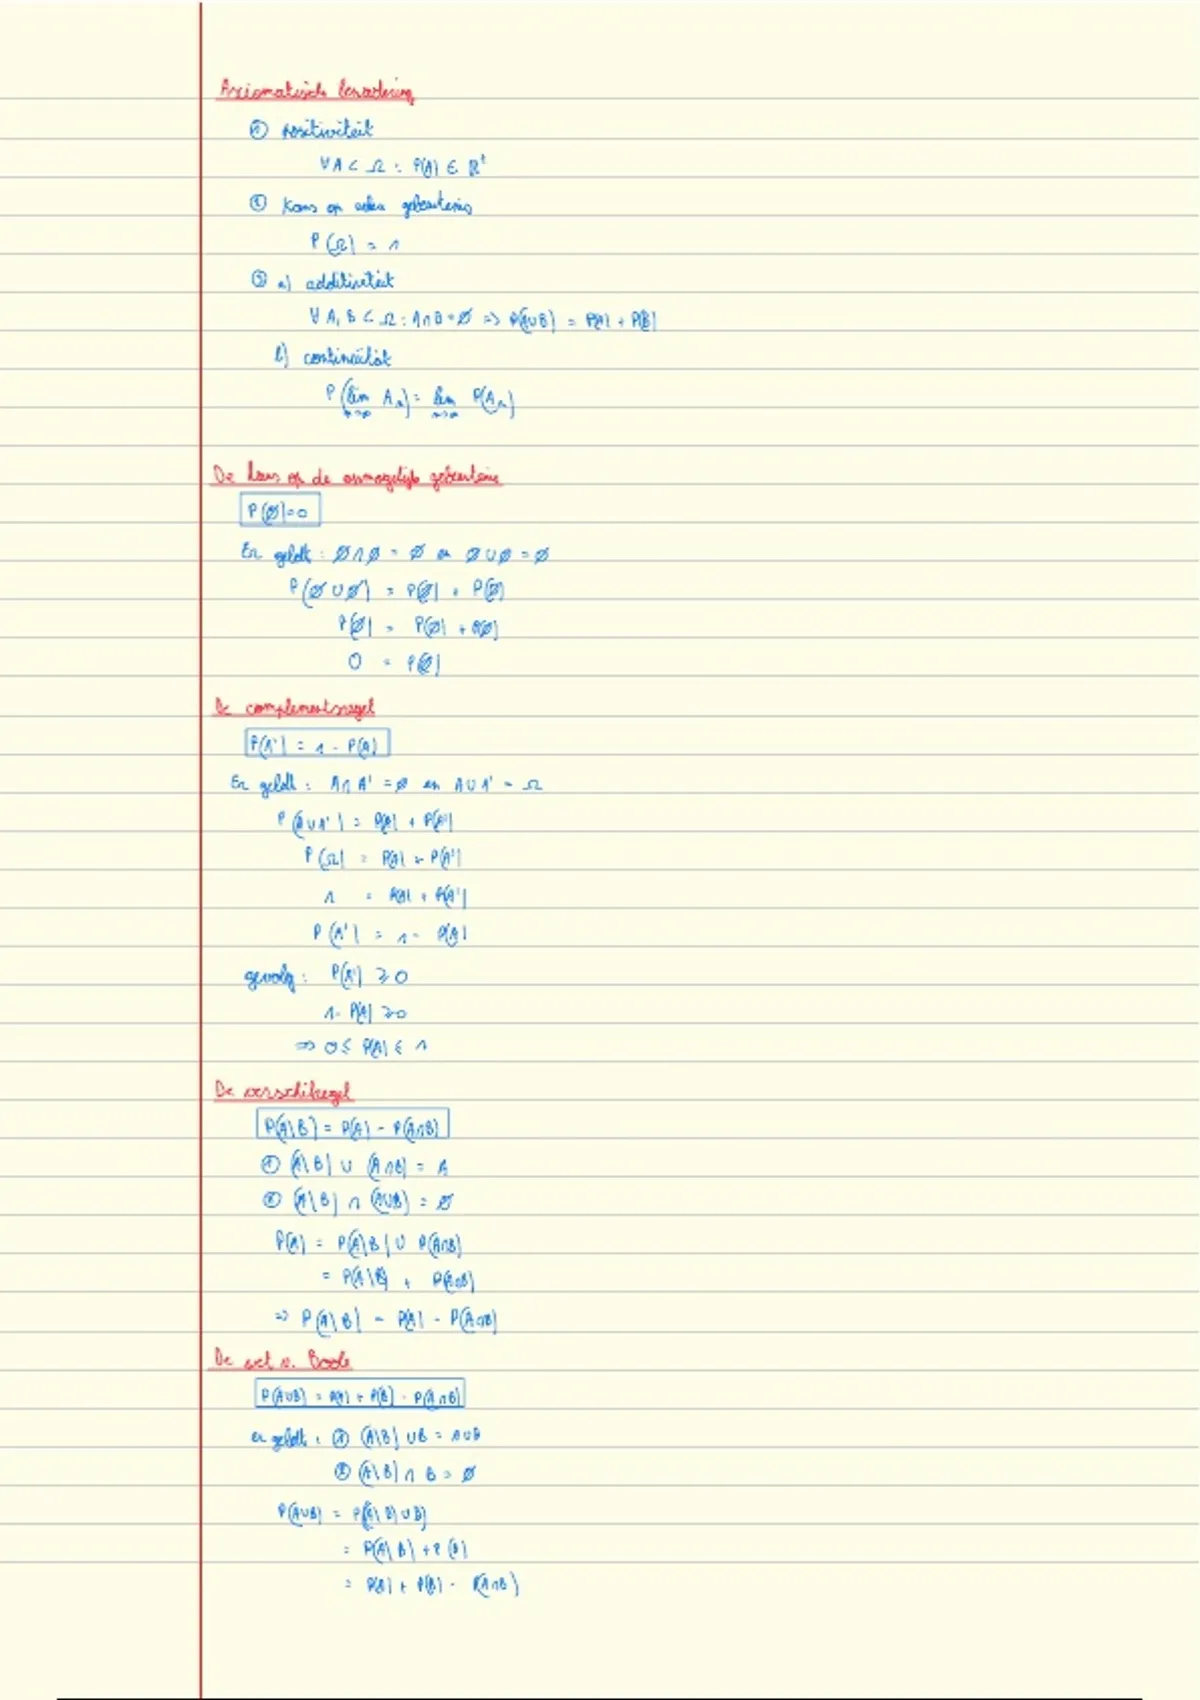 Axiomatische benadering
① positiviteit
∀ A ⊂ Ω : P(A) ∈ ℝ⁺
② Kans op zeker gebeurtenis
P(Ω) = 1
③ a) additiviteit
∀ A, B ⊂ Ω : A∩B = ∅ => P(A∪B) = P(A) + P(B)
b) continuïteit
P(lim n→∞ Aₙ) = lim n→∞ P(Aₙ)
De kans op de onmogelijke gebeurtenis
P(∅) = 0
Er geldt : ∅∩∅ = ∅ en ∅∪∅ = ∅
P(∅∪∅) = P(∅) + P(∅)
P(∅) = P(∅) + P(∅)
0 = P(∅)
De complementsregel
P(A') = 1 - P(A)
Er geldt : A∩A' = ∅ en A∪A' = Ω
P(A∪A') = P(A) + P(A')
P(Ω) = P(A) + P(A')
1 = P(A) + P(A')
P(A') = 1 - P(A)
gevolg : P(A') ≥ 0
1 - P(A) ≥ 0
=> 0 ≤ P(A) ≤ 1
De verschilregel
P(A\B) = P(A) - P(A∩B)
① (A\B) ∪ (A∩B) = A
② (A\B) ∩ (A∪B) = ∅
P(A) = P(A\B) ∪ P(A∩B)
= P(A\B) + P(A∩B)
=> P(A\B) = P(A) - P(A∩B)
De wet v. Boole
P(A∪B) = P(A) + P(B) - P(A∩B)
er geldt : ① (A\B) ∪ B = A∪B
② (A\B) ∩ B = ∅
P(A∪B) = P((A\B)∪B)
= P(A\B) + P(B)
= P(A) + P(B) - P(A∩B)